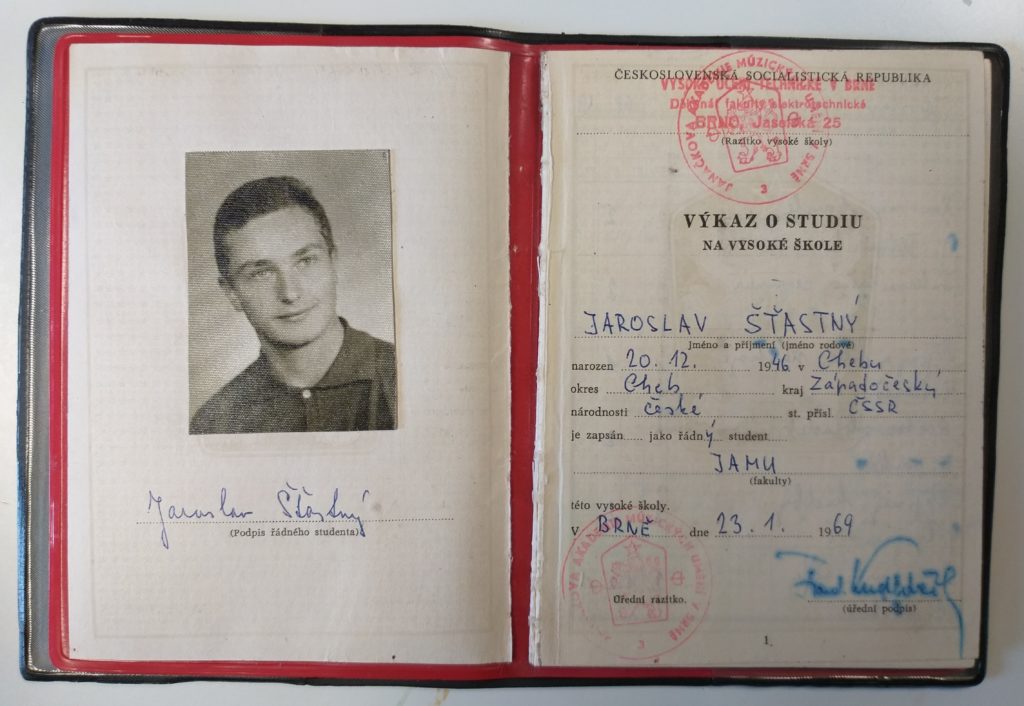 Jaroslav Šťastný
(Podpis řádného studenta)
ČESKOSLOVENSKÁ SOCIALISTICKÁ REPUBLIKA
VYSOKÉ UČENÍ TECHNICKÉ V BRNĚ
Děkanát fakulty elektrotechnické
BRNO, Jaselská 25
JANÁČKOVA AKADEMIE MÚZICKÝCH UMĚNÍ V BRNĚ
3
(Razítko vysoké školy)
VÝKAZ O STUDIU
NA VYSOKÉ ŠKOLE
JAROSLAV ŠŤASTNÝ
Jméno a příjmení (jméno rodové)
narozen 20. 12. 1946 v Chebu
okres Cheb kraj Západočeský
národnosti české st. přísl. ČSSR
je zapsán jako řádný student
JAMU
(fakulty)
této vysoké školy.
V BRNĚ dne 23. 1. 1969
JANÁČKOVA AKADEMIE MÚZICKÝCH UMĚNÍ V BRNĚ
Úřední razítko.
(úřední podpis)
1